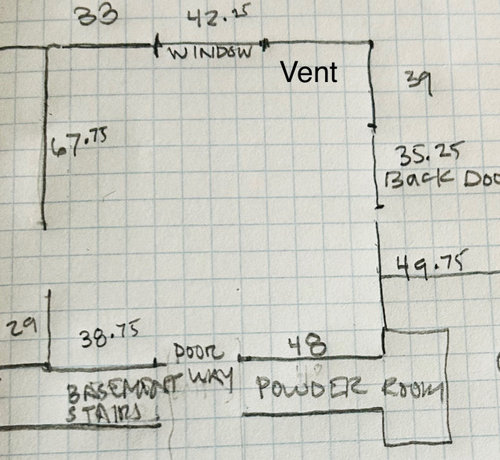 33
42.25
WINDOW
Vent
39
67.75
35.25
Back Doo
49.75
29
38.75
DOOR
WAY
48
BASEMENT
STAIRS
POWDER ROOM